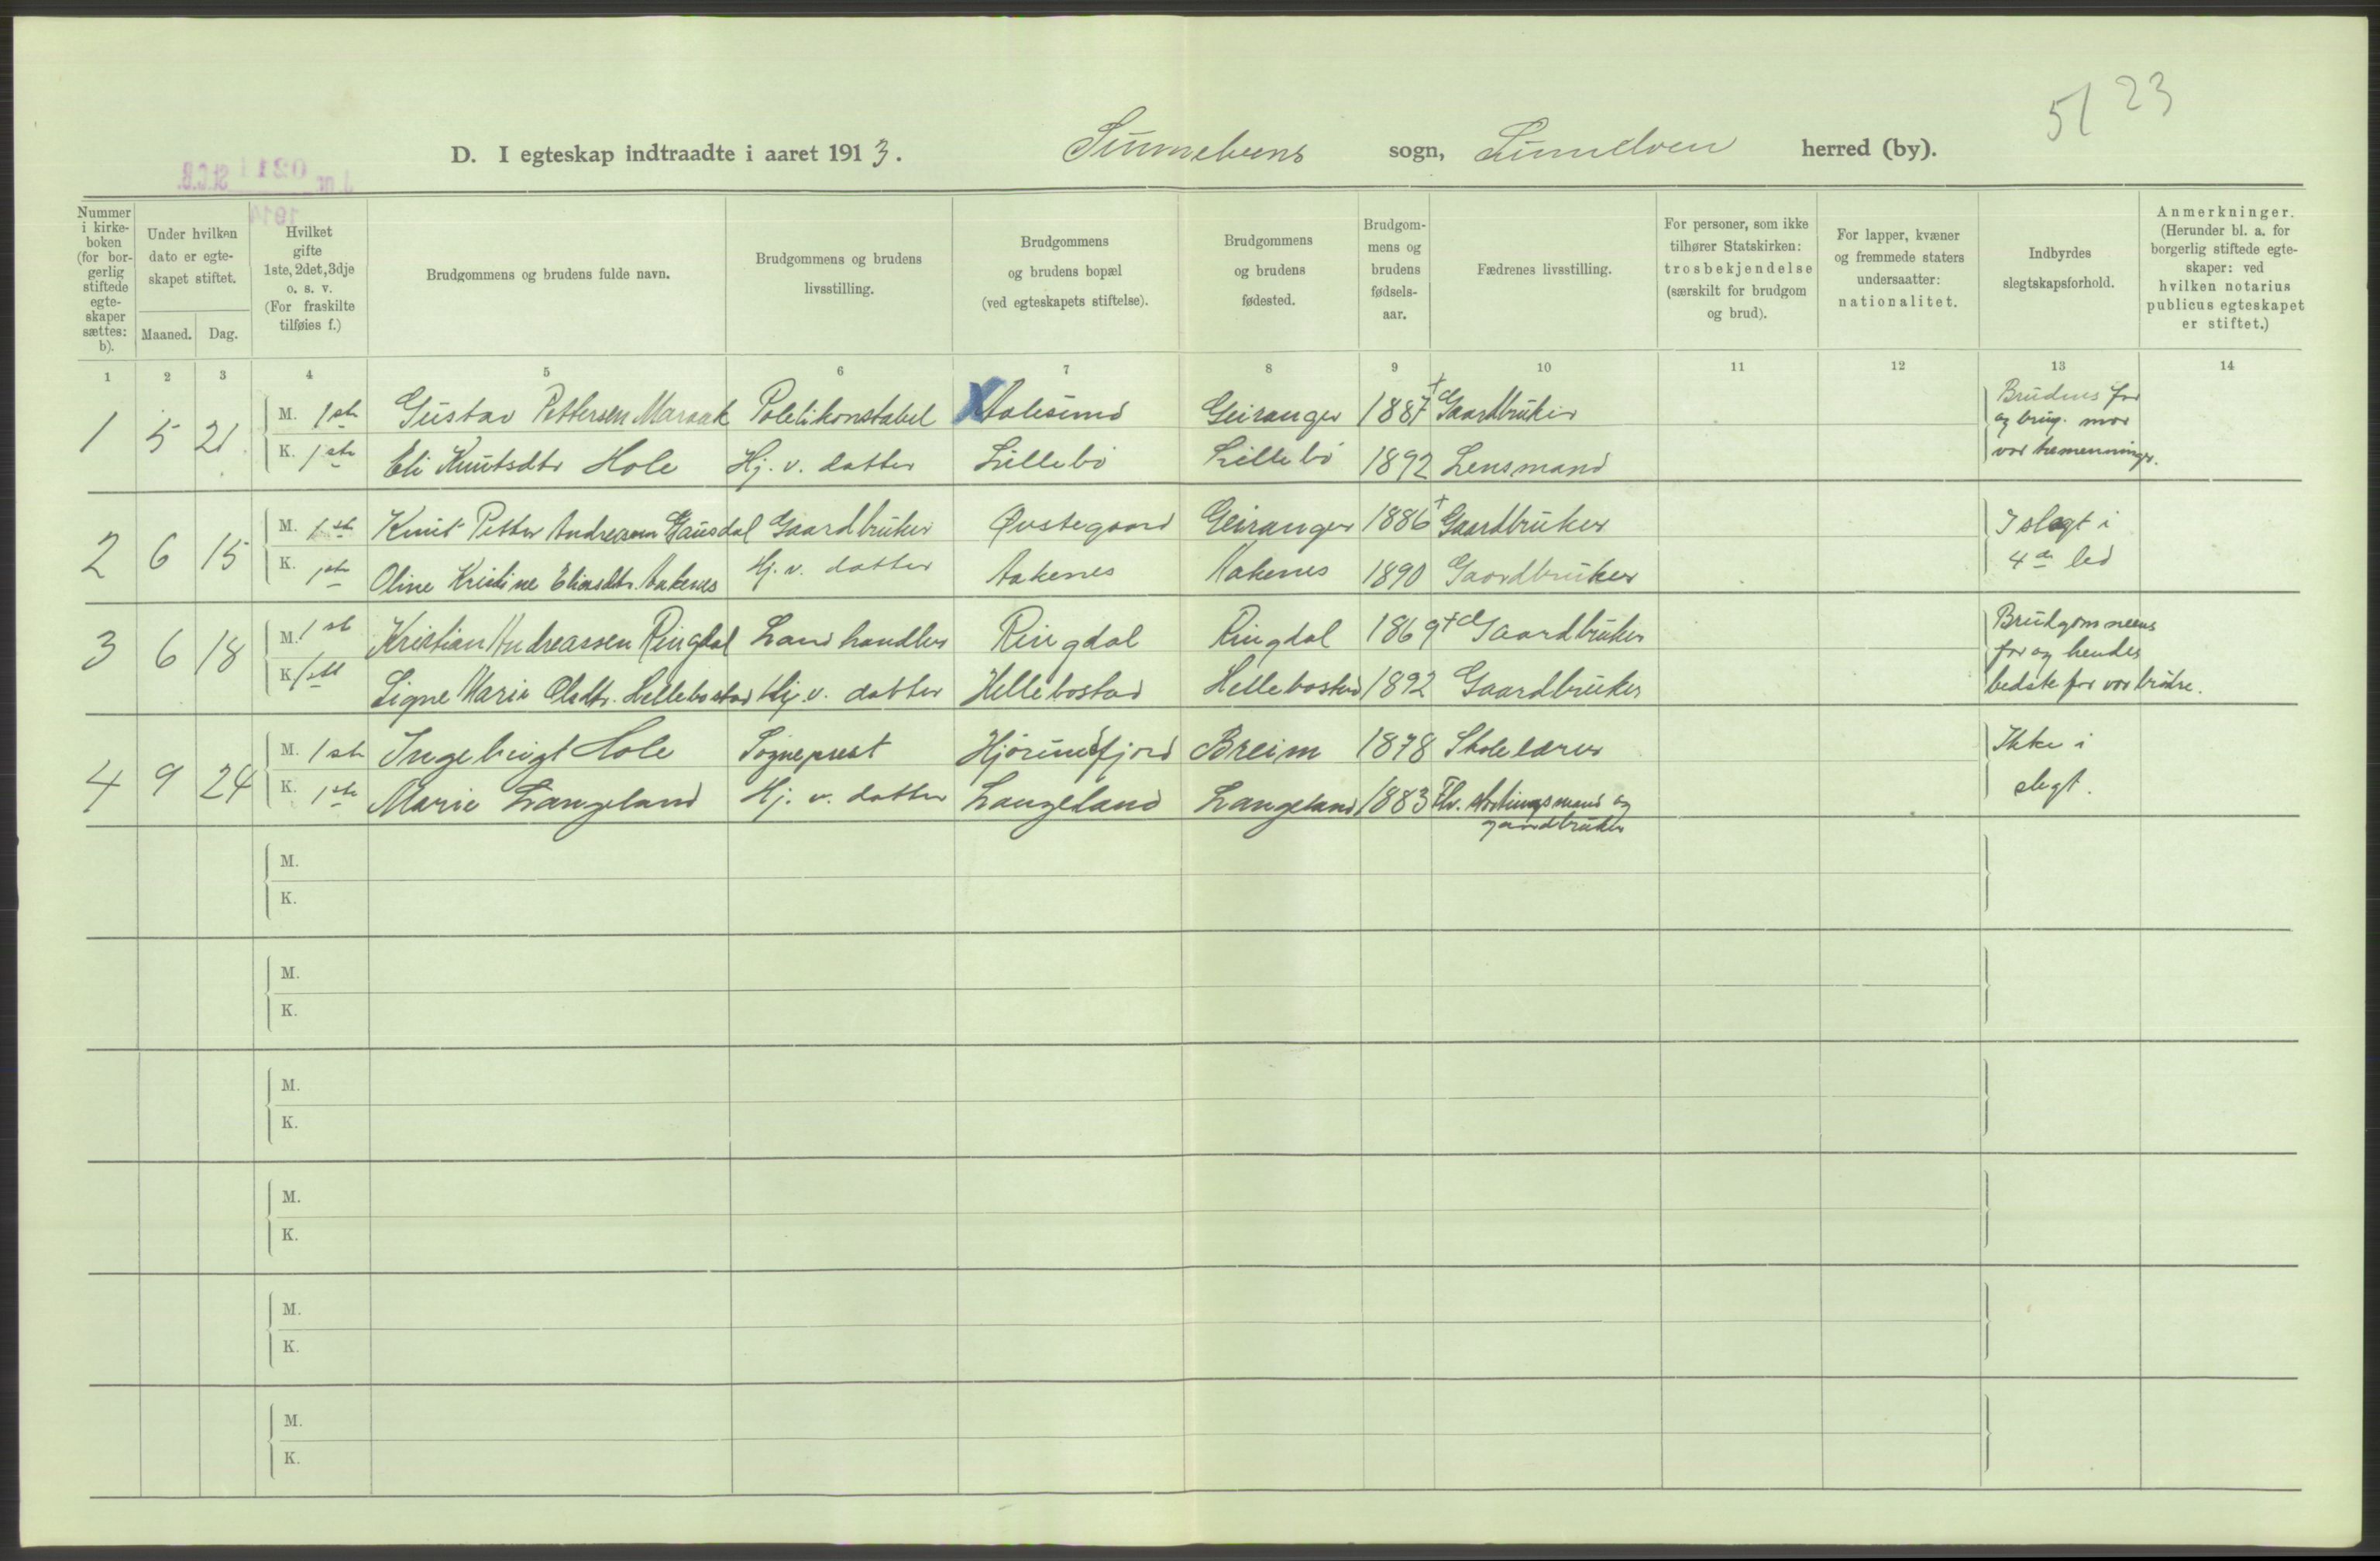 51 23
D. I egteskap indtraadte i aaret 1913. Sunnelvens sogn, Sunnelven herred (by).
J. nr. 0211 St.C.B.
1914
Nummer i kirkeboken (for borgerlig stiftede egteskaper sættes: b).
Under hvilken dato er egteskapet stiftet.
Maaned. Dag.
Hvilket gifte 1ste, 2det, 3dje o. s. v. (For fraskilte tilføies f.)
Brudgommens og brudens fulde navn.
Brudgommens og brudens livsstilling.
Brudgommens og brudens bopæl (ved egteskapets stiftelse).
Brudgommens og brudens fødested.
Brudgommens og brudens fødselsaar.
Fædrenes livsstilling.
For personer, som ikke tilhører Statskirken: trosbekjendelse (særskilt for brudgom og brud).
For lapper, kvæner og fremmede staters undersaatter: nationalitet.
Indbyrdes slegtskapsforhold.
Anmerkninger. (Herunder bl. a. for borgerlig stiftede egteskaper: ved hvilken notarius publicus egteskapet er stiftet.)
1 2 3 4 5 6 7 8 9 10 11 12 13 14
1 5 21 M. 1ste Gustav Pettersen Maraak Politikonstabel X Aalesund Geiranger 1887 + Gaardbruker
K. 1ste Eli Knutsdtr Hole Hj. v. datter Lillebö Lillebö 1892 Lensmand
Brudens far
og brug. mor
var tremenninger.
2 6 15 M. 1ste Knut Petter Andreassen Gausdal Gaardbruker Øvstegaard Geiranger 1886 + Gaardbruker
K. 1ste Oline Kristine Eliasdtr. Aakenes Hj. v. datter Aakenes Aakenes 1890 Gaardbruker
I slegt i
4de led
3 6 18 M. 1ste Kristian Andreassen Ringdal Landhandler Ringdal Ringdal 1869 + Gaardbruker
K. 1ste Signe Marie Olsdtr. Hellebostad Hj. v. datter Hellebostad Hellebostad 1892 Gaardbruker
Brudgommens
far og hendes
bedstefar var brødre.
4 9 24 M. 1ste Ingebrigt Hole Sogneprest Hjørundfjord Breim 1878 Skolelærer
K. 1ste Marie Langeland Hj. v. datter Langeland Langeland 1883 Fhv. stortingsmand og
gaardbruker
Ikke i
slegt.
M.
K.
M.
K.
M.
K.
M.
K.
M.
K.
M.
K.